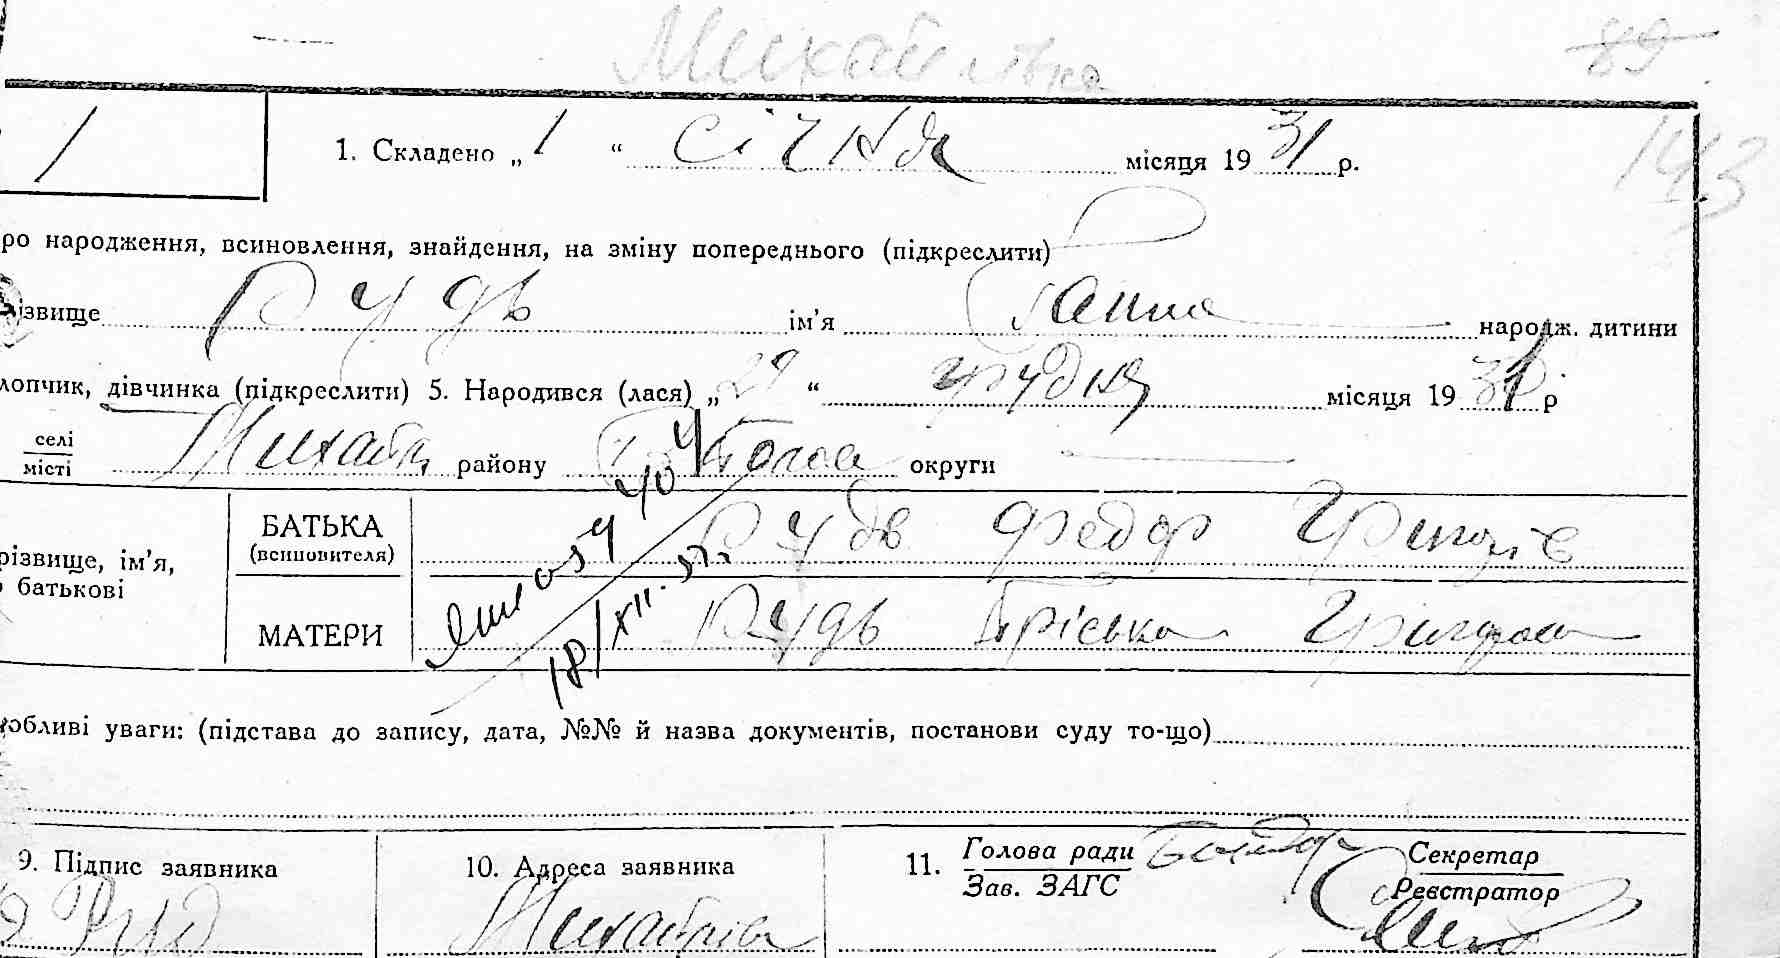 Михайлівка
89
143
1
1. Складено „ 1 “ січня місяця 19 31 р.
ро народження, всиновлення, знайдення, на зміну попереднього (підкреслити)
ізвище Рудь ім’я Ганна народж. дитини
лопчик, дівчинка (підкреслити) 5. Народився (лася) „ 29 “ грудня місяця 19 р
селі
місті Михайл району округи
різвище, ім’я,
батькові
БАТЬКА
(всиновителя)
Рудь Федор Григорів
МАТЕРИ
Рудь Пріська
18/XII-57.
обливі уваги: (підстава до запису, дата, №№ й назва документів, постанови суду то-що)
9. Підпис заявника
10. Адреса заявника
Михайлівка
11. Голова ради
Зав. ЗАГС
Секретар
Реєстратор